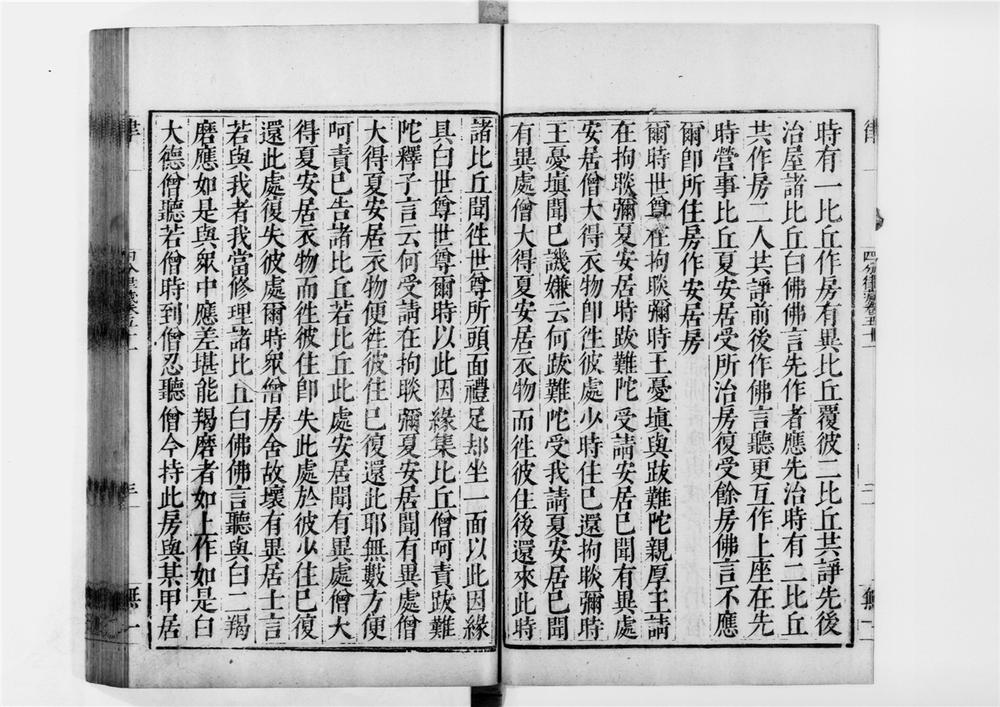 時有一比丘作房有異比丘覆彼二比丘共諍先後
治屋諸比丘白佛佛言先作者應先治時有二比丘
共作房二人共諍前後作佛言聽更互作上座在先
時營事比丘夏安居受所治房復受餘房佛言不應
爾卽所住房作安居房
爾時世尊在拘睒彌時王憂塡與跋難陀親厚王請
在拘睒彌夏安居時跋難陀受請安居已聞有異處
安居僧大得衣物卽徃彼處少時住已還拘睒彌時
王憂塡聞已譏嫌云何跋難陀受我請夏安居已聞
有異處僧大得夏安居衣物而徃彼住後還來此時
諸比丘聞徃世尊所頭面禮足却坐一面以此因緣
具白世尊世尊爾時以此因緣集比丘僧呵責跋難
陀釋子言云何受請在拘睒彌夏安居聞有異處僧
大得夏安居衣物便徃彼住已復還此耶無數方便
呵責已告諸比丘若比丘此處安居聞有異處僧大
得夏安居衣物而徃彼住卽失此處於彼少住已復
還此處復失彼處爾時衆僧房舍故壞有異居士言
若與我者我當修理諸比丘白佛佛言聽與白二羯
磨應如是與衆中應差堪能羯磨者如上作如是白
大德僧聽若僧時到僧忍聽僧今持此房與某甲居